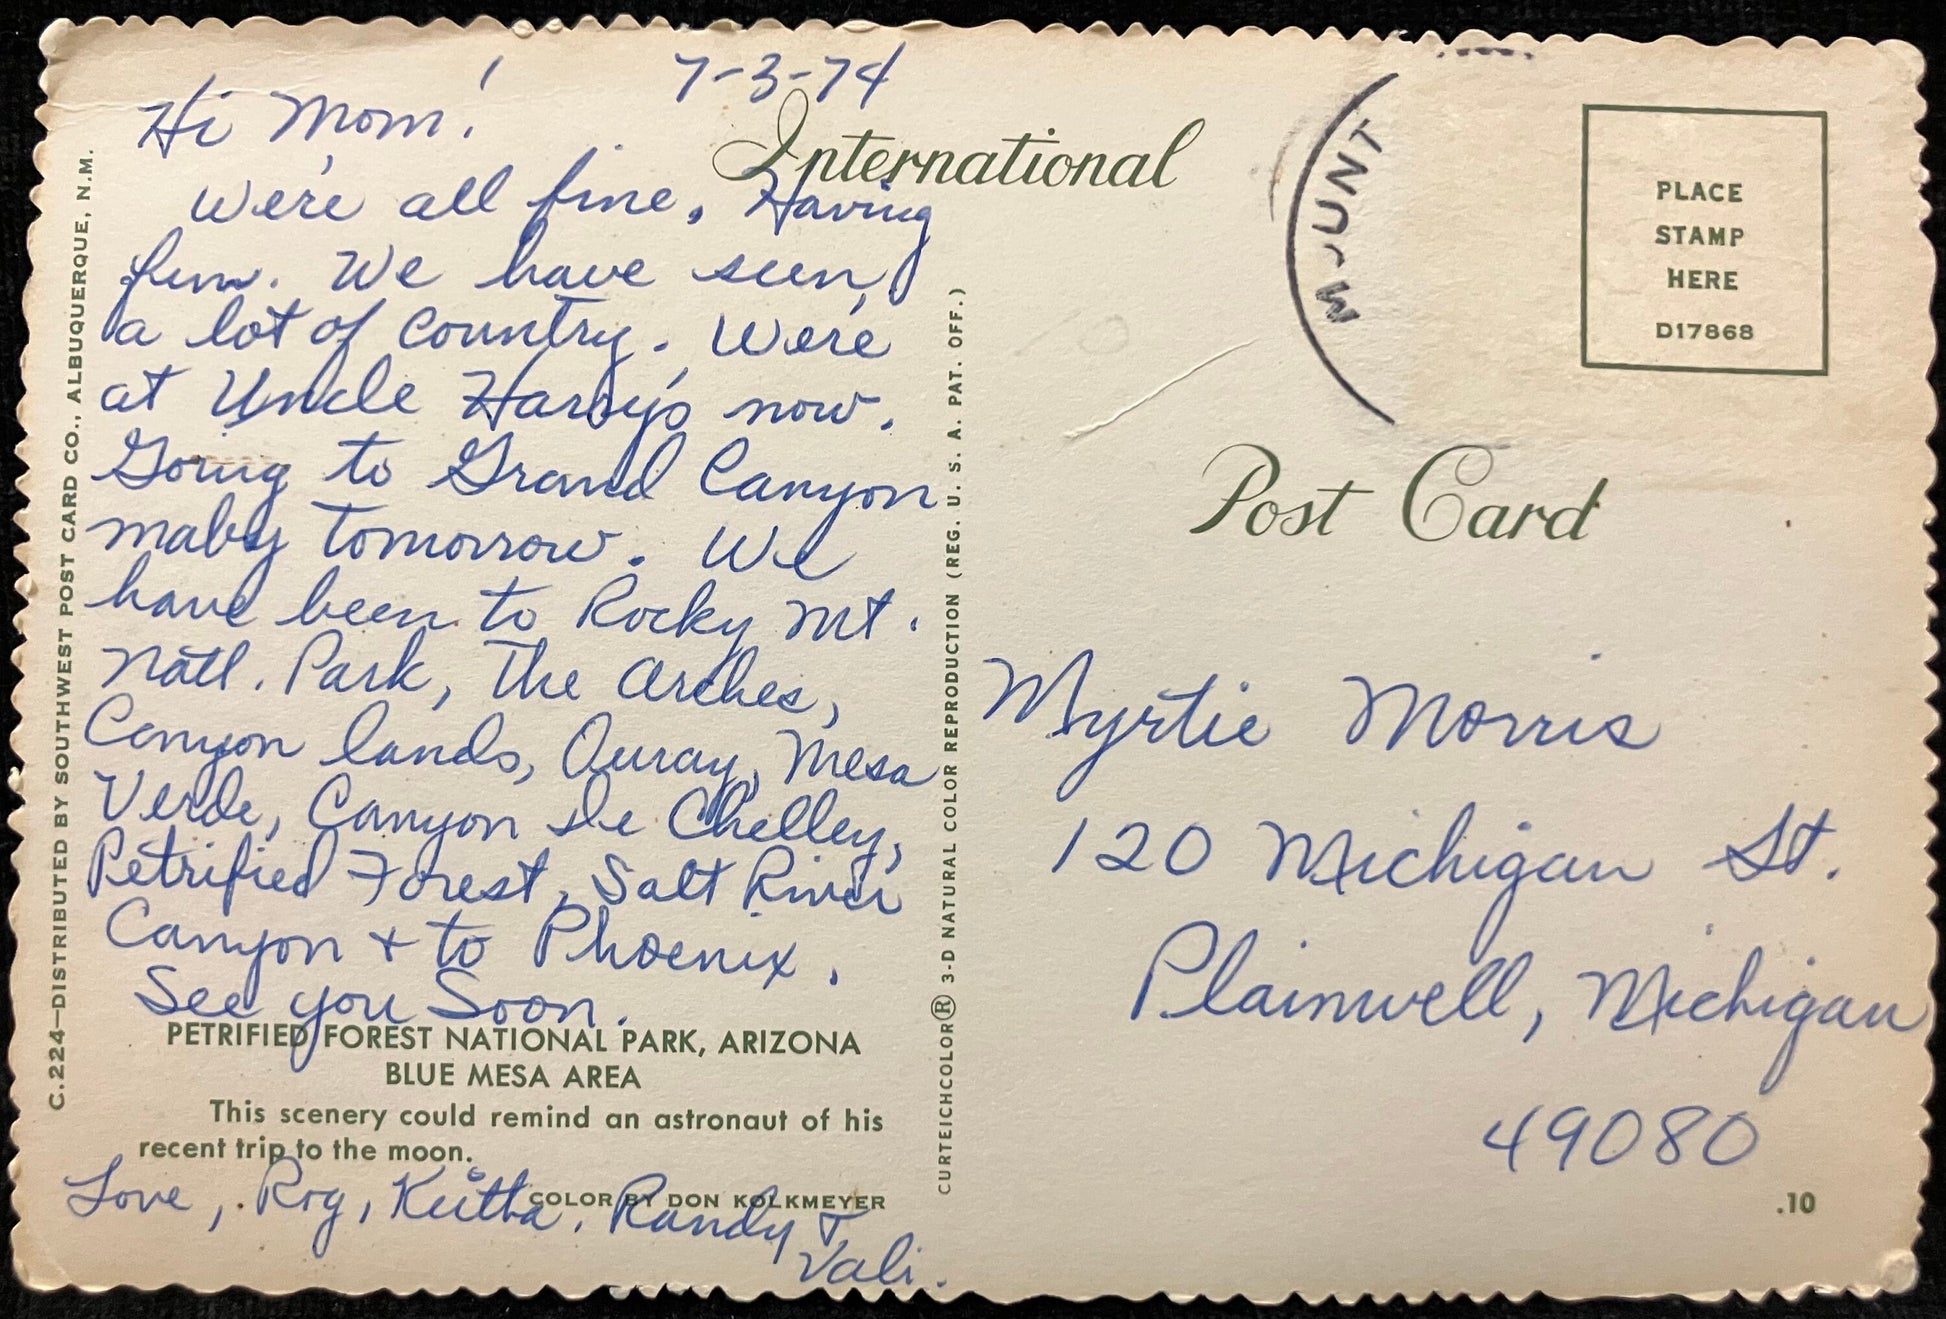 7-3-74
Hi Mom!
We're all fine. Having
fun. We have seen
a lot of country. We're
at Uncle Harry's now.
Going to Grand Canyon
maby tomorrow. We
have been to Rocky Mt.
Natl. Park, The Arches,
Canyon lands, Ouray, Mesa
Verde, Canyon de Chelley,
Petrified Forest, Salt River
Canyon + to Phoenix.
See you Soon.
PETRIFIED FOREST NATIONAL PARK, ARIZONA
BLUE MESA AREA
This scenery could remind an astronaut of his
recent trip to the moon.
COLOR BY DON KOLKMEYER
Love, Rog, Keitha, Randy +
Vali.
C.224—DISTRIBUTED BY SOUTHWEST POST CARD CO., ALBUQUERQUE, N.M.
CURTEICHCOLOR® 3-D NATURAL COLOR REPRODUCTION (REG. U. S. A. PAT. OFF.)
International
Post Card
PLACE
STAMP
HERE
D17868
Myrtie Morris
120 Michigan St.
Plainwell, Michigan
49080
.10